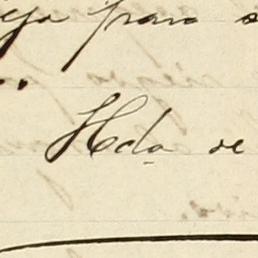 para s
Hda de